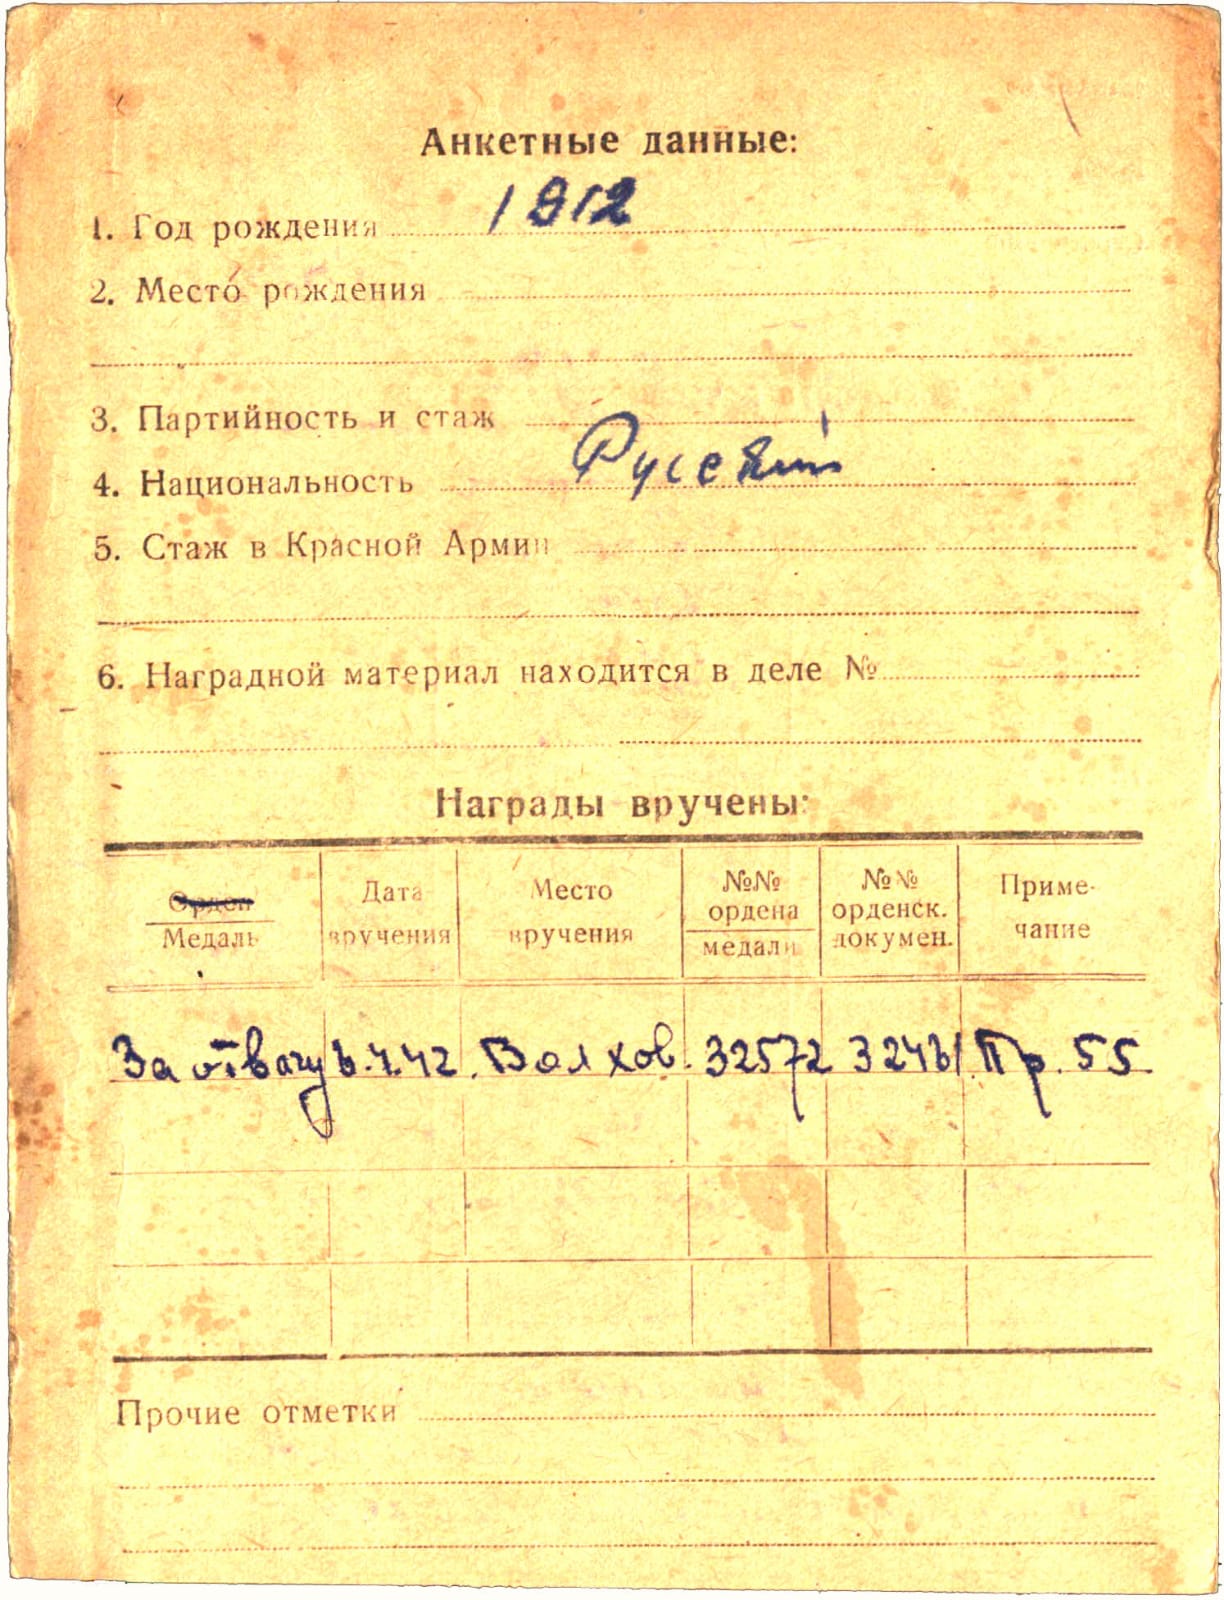 Анкетные данные:
1. Год рождения 1912
2. Место рождения
3. Партийность и стаж
4. Национальность Русский
5. Стаж в Красной Армии
6. Наградной материал находится в деле №
Награды вручены:
Орден Медаль Дата вручения Место вручения №№ ордена медали №№ орденск. докумен. Приме-чание
За отвагу Волхов. 32572 Пр. 55
Прочие отметки